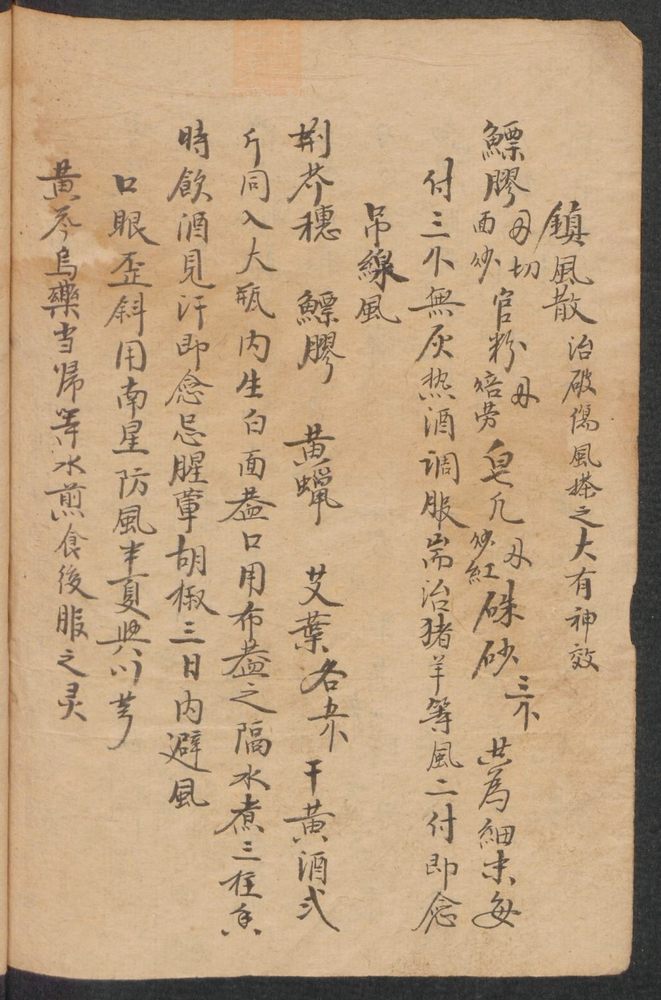 鎮風散 治破傷風搽之大有神效
鰾膠 切面炒 官粉 焙勞 皂凡 炒紅 硃砂 三 共為細末每
付三 無灰热酒調服耑治猪羊等風二付即愈
吊線風
荆芥穗 鰾膠 黄蠟 艾葉各 干黄酒弍
斤同入大瓶内生白面盖口用布盖之隔水煮三柱香
時飲酒見汗即愈忌腥葷胡椒三日内避風
口眼歪斜用南星防風半夏 川芎
黄芩烏藥当归等水煎食後服之灵